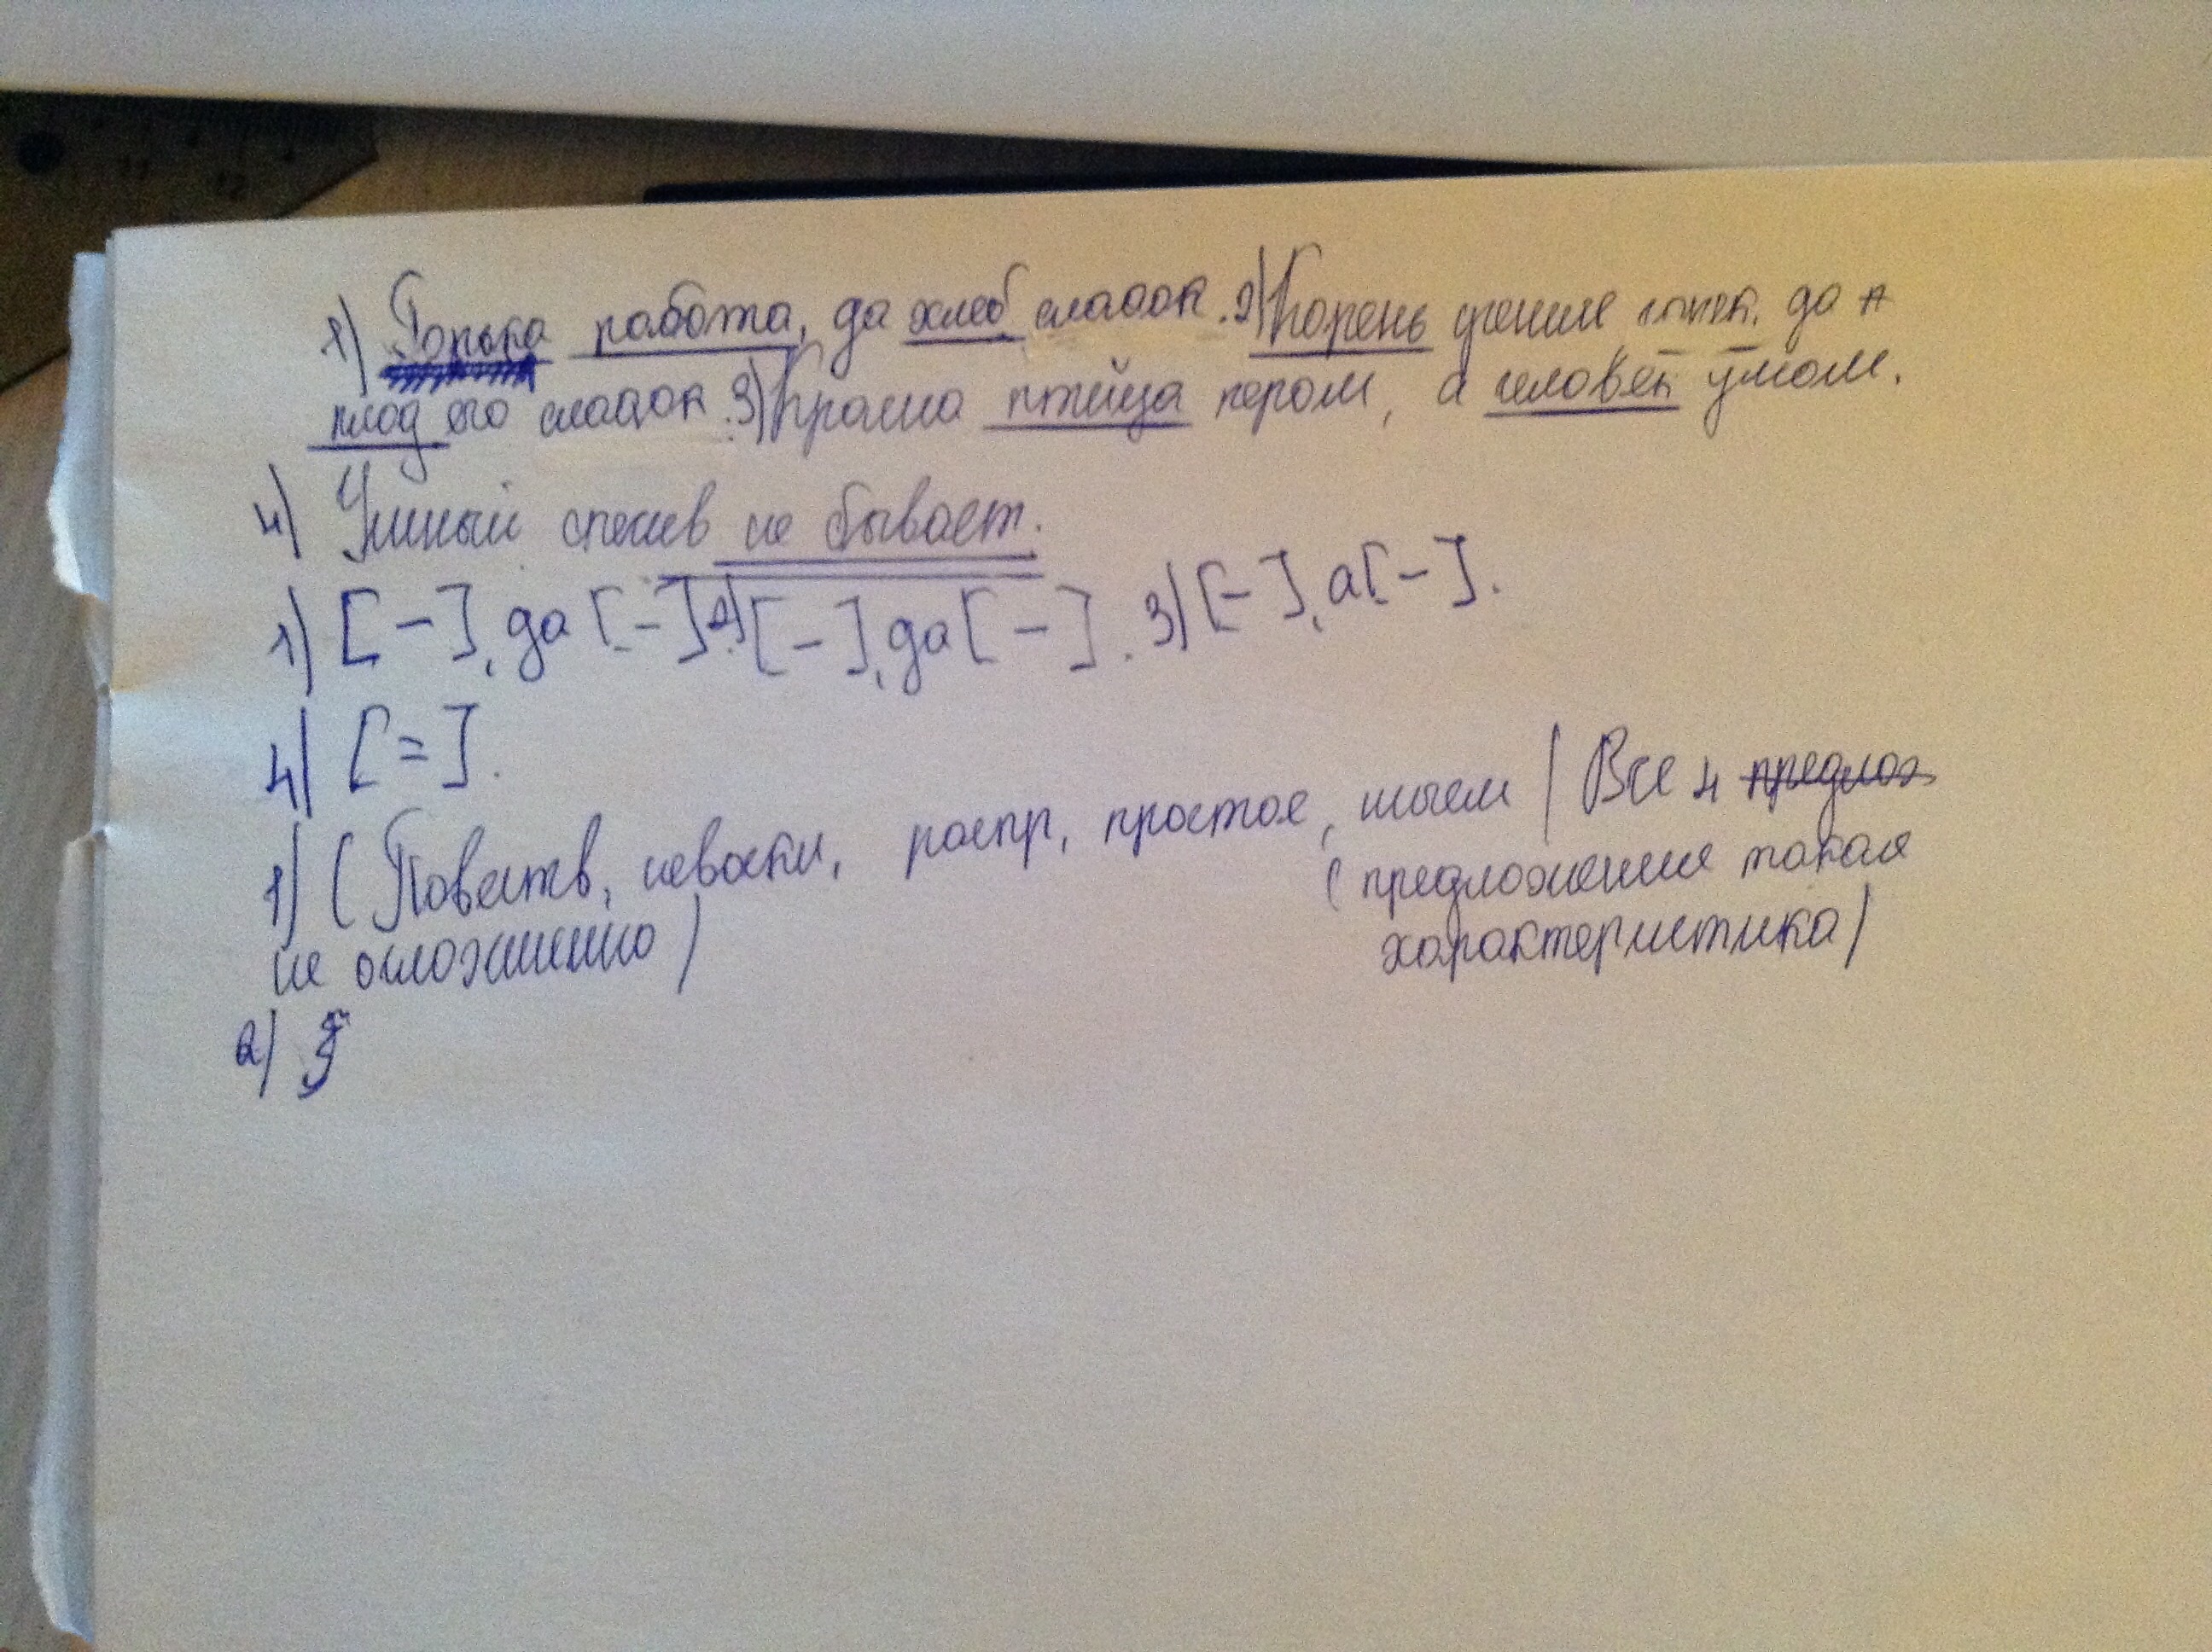 1) Горька работа, да хлеб сладок. 2) Корень учение горек, да
плод его сладок. 3) Краша птица пером, а человек умом.
4) Умный спесив не бывает.
1) [-], да [-]. 2) [-], да [-]. 3) [-], а [-].
4) [=].
1) (Повеств, невоскл, распр, простое, | Все 4 предлож
не осложненно) (предложения такая
характеристика)
2)